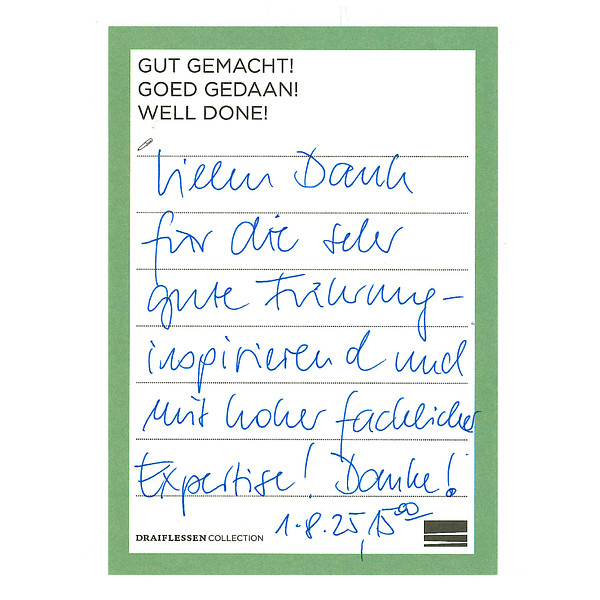 GUT GEMACHT!
GOED GEDAAN!
WELL DONE!
Vielen Dank
für die sehr
gute Führung –
inspirierend und
mit hoher fachlicher
Expertise! Danke!
1.8.25, 15⁰⁰
DRAIFLESSEN COLLECTION